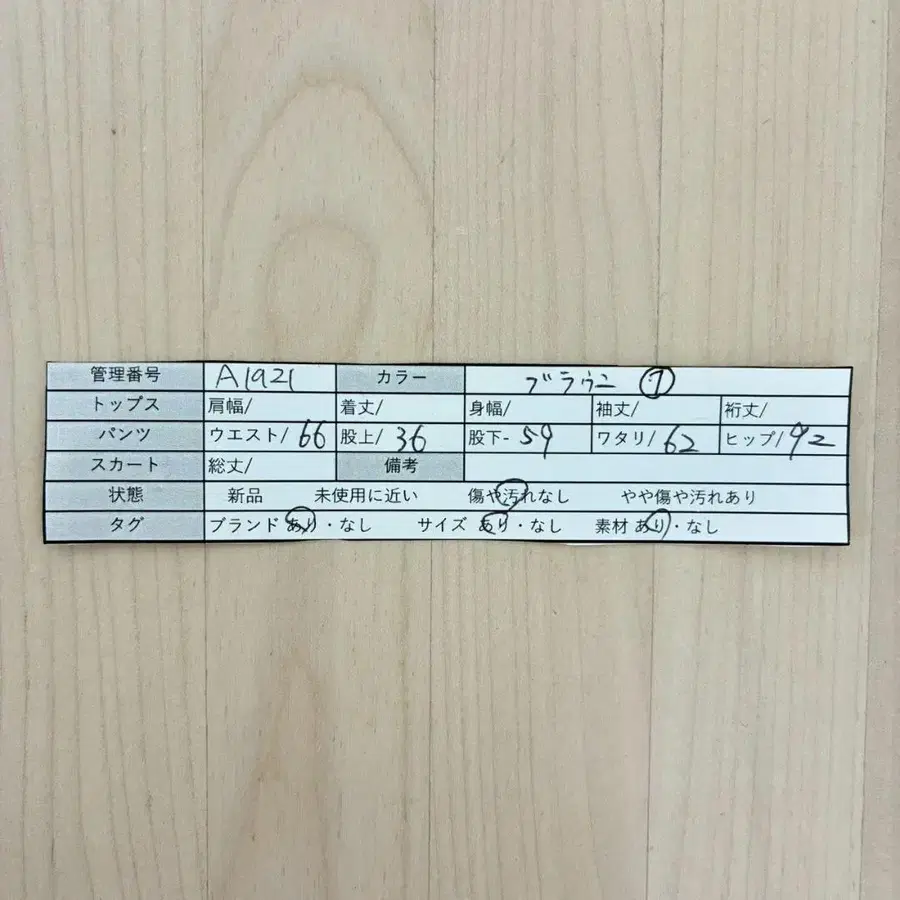 管理番号 A1921 カラー ブラウン ⑦
トップス 肩幅/ 着丈/ 身幅/ 袖丈/ 裄丈/
パンツ ウエスト/ 66 股上/ 36 股下- 59 ワタリ/ 62 ヒップ/ 92
スカート 総丈/ 備考
状態 新品 未使用に近い 傷や汚れなし やや傷や汚れあり
タグ ブランド あり・なし サイズ あり・なし 素材 あり・なし